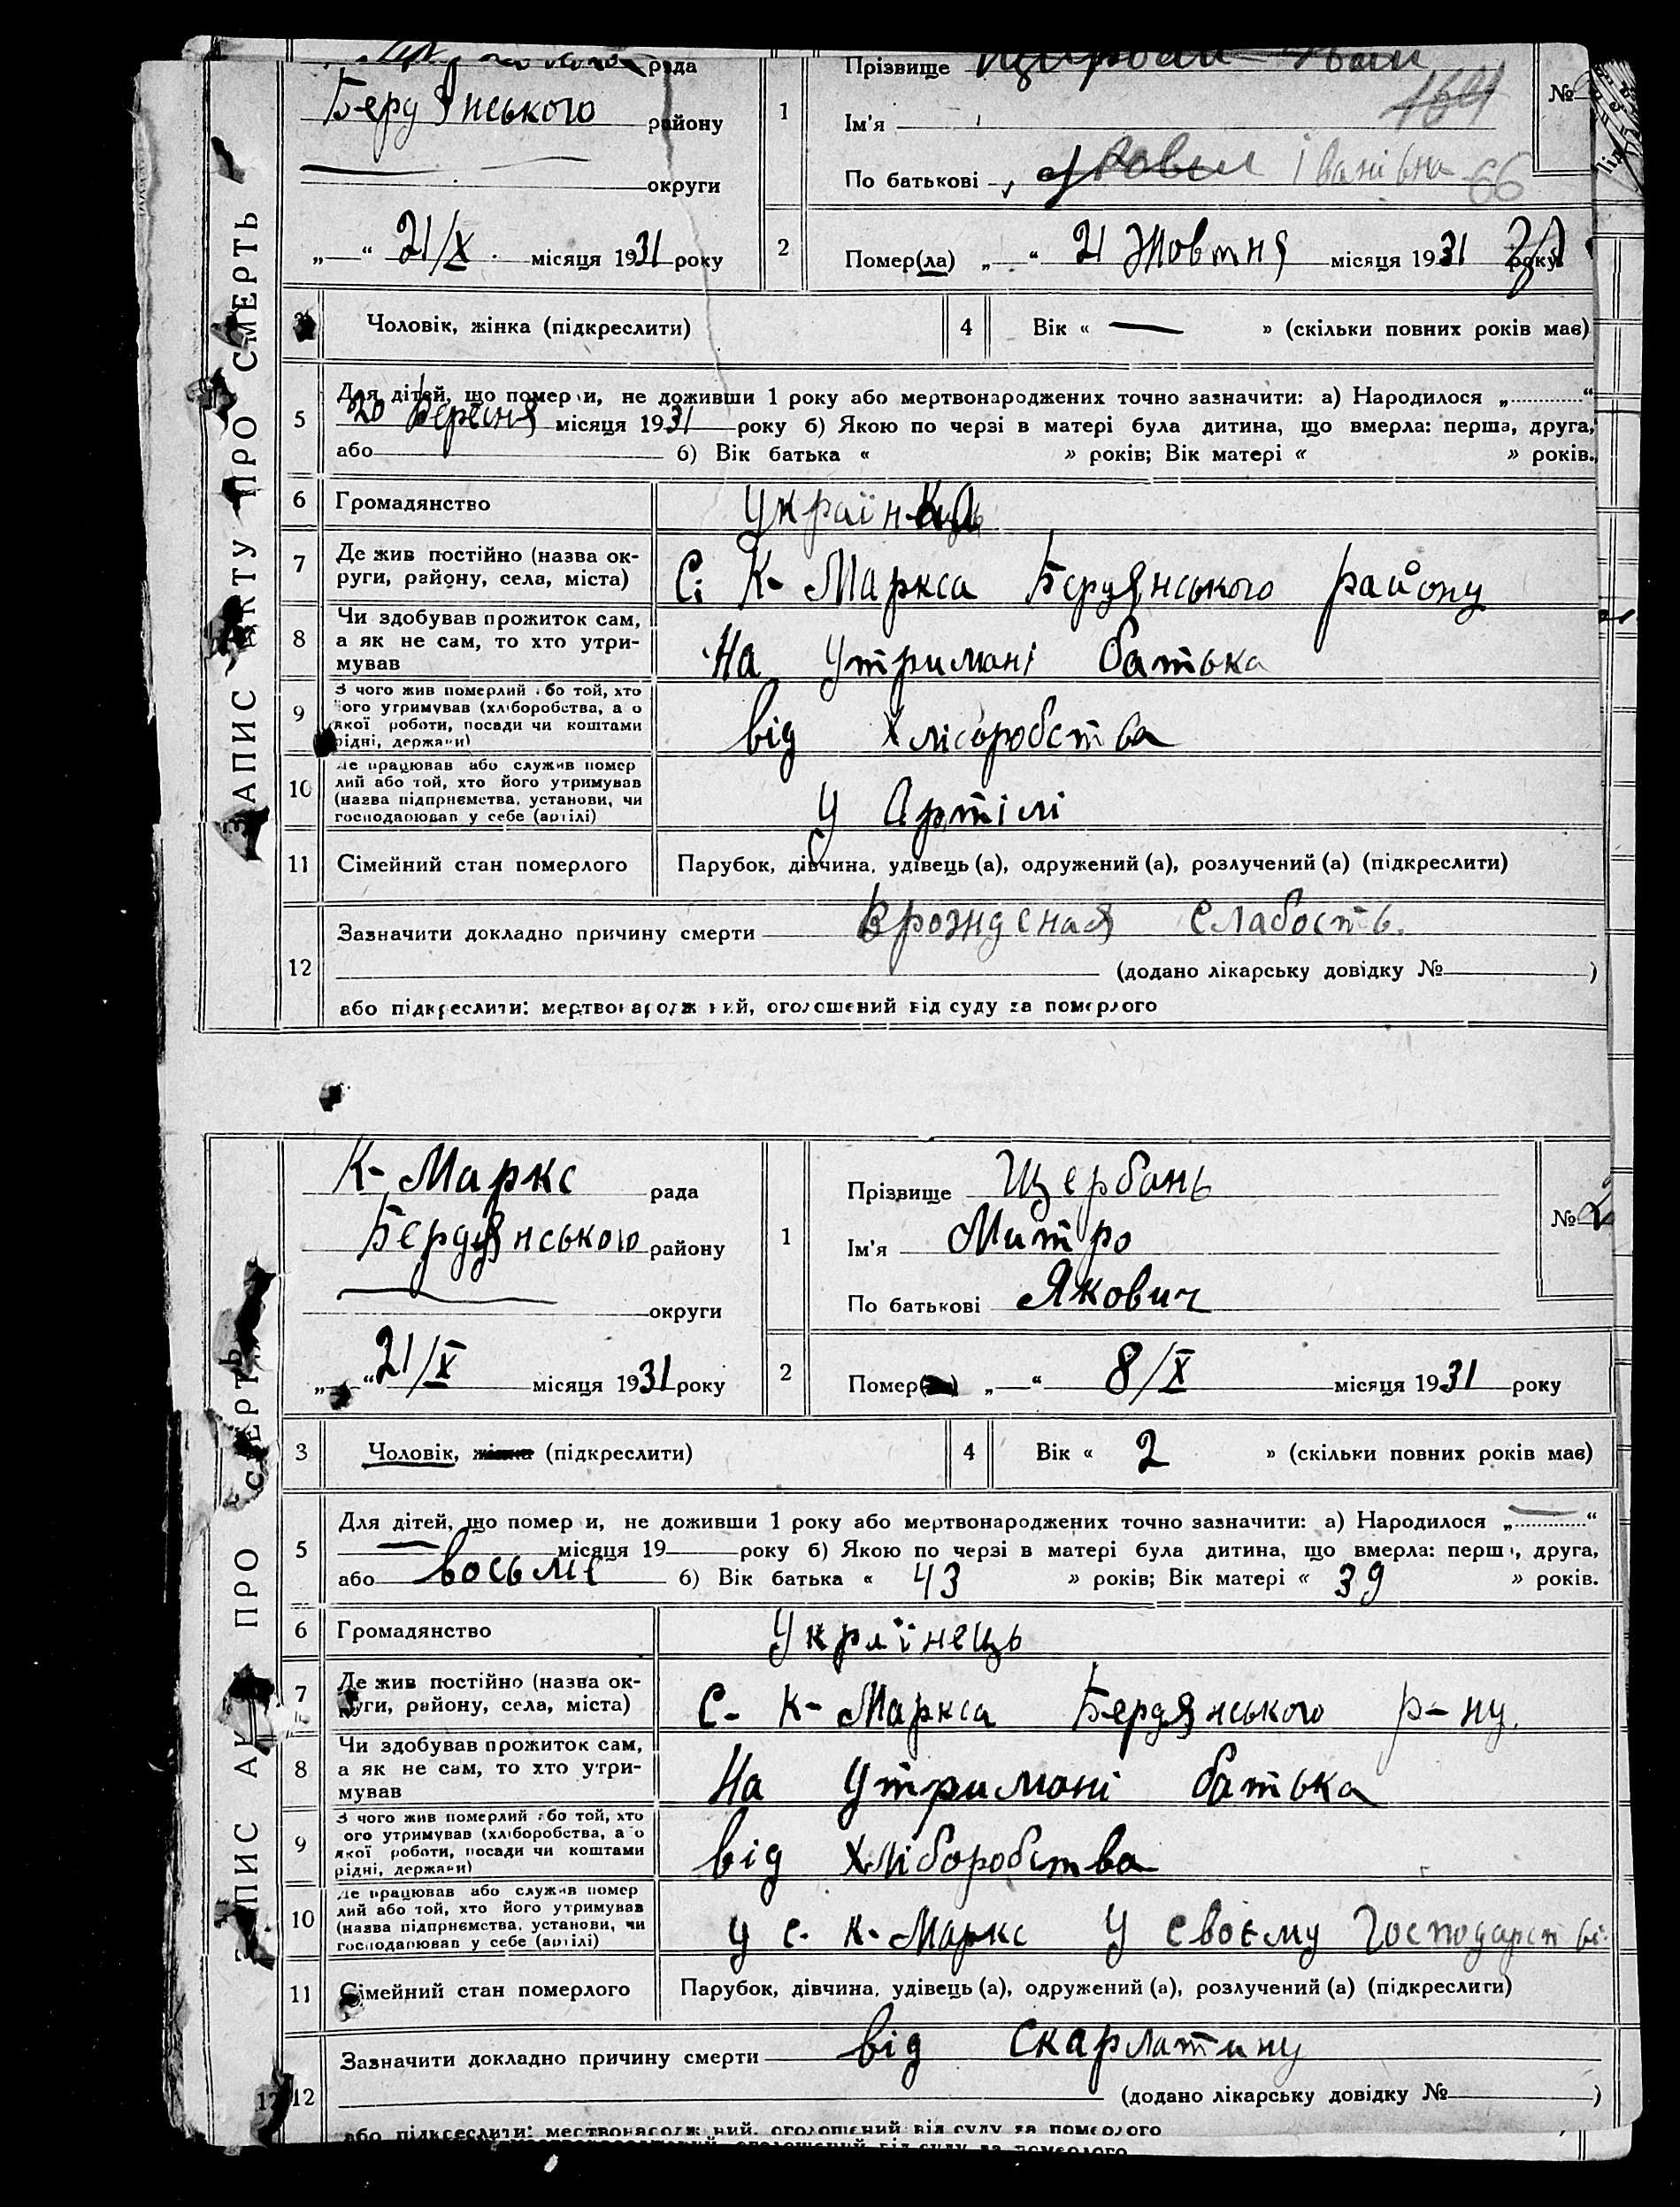 рада
Бердянського району
округи
„—“ 21/X місяця 1931 року
1
Прізвище
Ім'я
164
По батькові Іванівна 66
№
2
Помер(ла) „—“ 21 Жовтня місяця 1931 року
ЗАПИС АКТУ ПРО СМЕРТЬ
Чоловік, жінка (підкреслити)
4
Вік « — » (скільки повних років має)
5
Для дітей, що померли, не доживши 1 року або мертвонароджених точно зазначити: а) Народилося „............“
20 Вересня місяця 1931 року б) Якою по черзі в матері була дитина, що вмерла: перша, друга,
або б) Вік батька « » років; Вік матері « » років.
6
Громадянство
Українка
7
Де жив постійно (назва округи, району, села, міста)
С. К-Маркса Бердянського району
8
Чи здобував прожиток сам,
а як не сам, то хто утримував
На Утримані батька
9
З чого жив померлий або той, хто
його утримував (хліборобства, або
якої роботи, посади чи коштами
рідні, держави)
від Хліборобства
10
Де працював або служив померлий або той, хто його утримував
(назва підприємства, установи, чи
господарював у себе (артілі)
у Артілі
11
Сімейний стан померлого
Парубок, дівчина, удівець (а), одружений (а), розлучений (а) (підкреслити)
12
Зазначити докладно причину смерти Врожденая Слабость.
(додано лікарську довідку № )
або підкреслити: мертвонароджений, оголошений від суду за померлого
К-Маркс рада
Бердянського району
округи
„—“ 21/X місяця 1931 року
1
Прізвище Щербань
Ім'я Митро
По батькові Якович
№ 2
2
Помер „—“ 8/X місяця 1931 року
ЗАПИС АКТУ ПРО СМЕРТЬ
3
Чоловік, жінка (підкреслити)
4
Вік « 2 » (скільки повних років має)
5
Для дітей, що померли, не доживши 1 року або мертвонароджених точно зазначити: а) Народилося „............“
— місяця 19 року б) Якою по черзі в матері була дитина, що вмерла: перша, друга,
або восьме б) Вік батька « 43 » років; Вік матері « 39 » років.
6
Громадянство
Українець
7
Де жив постійно (назва округи, району, села, міста)
С- К-Маркса Бердянського р-ну.
8
Чи здобував прожиток сам,
а як не сам, то хто утримував
На Утримані батька
9
З чого жив померлий або той, хто
його утримував (хліборобства, або
якої роботи, посади чи коштами
рідні, держави)
від Хліборобства
10
Де працював або служив померлий або той, хто його утримував
(назва підприємства, установи, чи
господарював у себе (артілі)
у с. К-Маркс У своєму Господарстві
11
Сімейний стан померлого
Парубок, дівчина, удівець (а), одружений (а), розлучений (а) (підкреслити)
12
Зазначити докладно причину смерти від Скарлатину
(додано лікарську довідку № )
або підкреслити: мертвонароджений, оголошений від суду за померлого